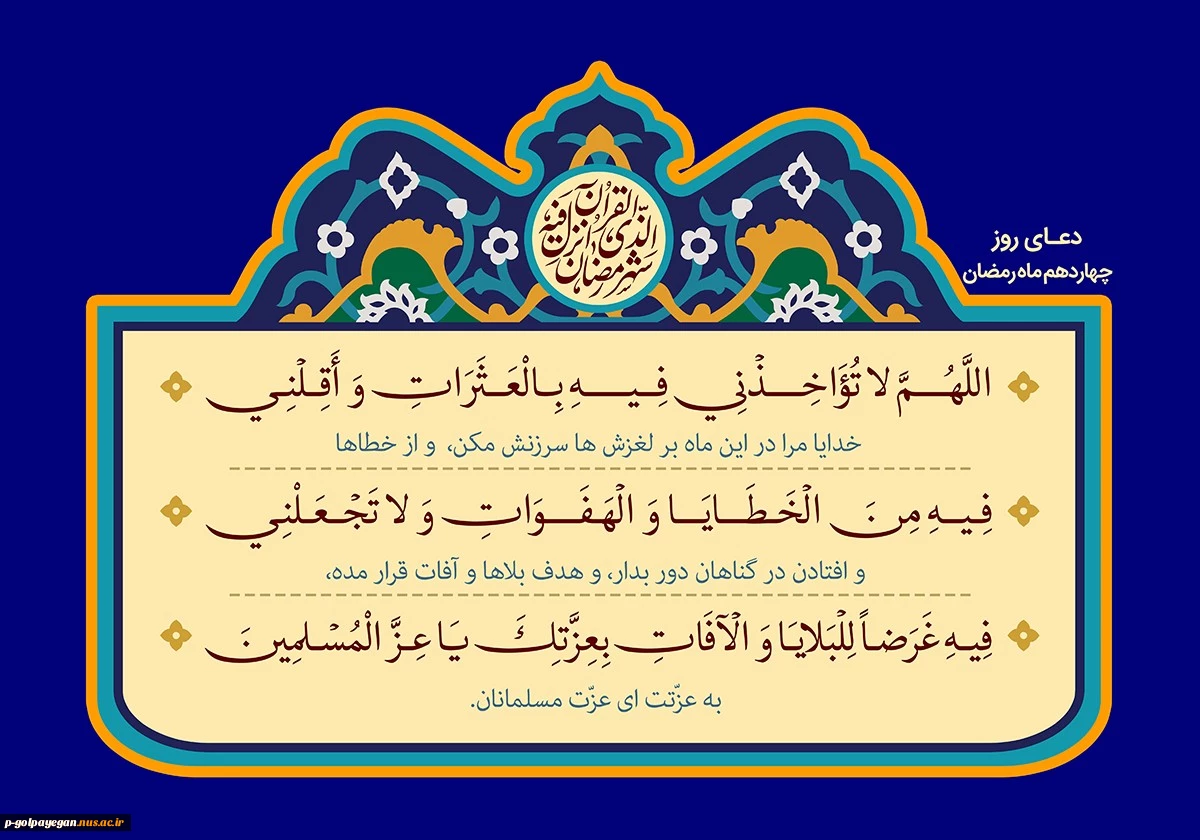 شَهْرُ رَمَضَانَ الَّذِی أُنْزِلَ فِیهِ الْقُرْآنُ
دعـای روز
چهاردهم ماه رمضان
اللَّهُمَّ لا تُؤَاخِذْنِي فِيهِ بِالْعَثَرَاتِ وَ أَقِلْنِي
خدایا مرا در این ماه بر لغزش ها سرزنش مکن، و از خطاها
فِيهِ مِنَ الْخَطَايَا وَ الْهَفَوَاتِ وَ لا تَجْعَلْنِي
و افتادن در گناهان دور بدار، و هدف بلاها و آفات قرار مده،
فِيهِ غَرَضاً لِلْبَلايَا وَ الْآفَاتِ بِعِزَّتِكَ يَا عِزَّ الْمُسْلِمِينَ
به عزّتت ای عزّت مسلمانان.
p-golpayegan.nus.ac.ir